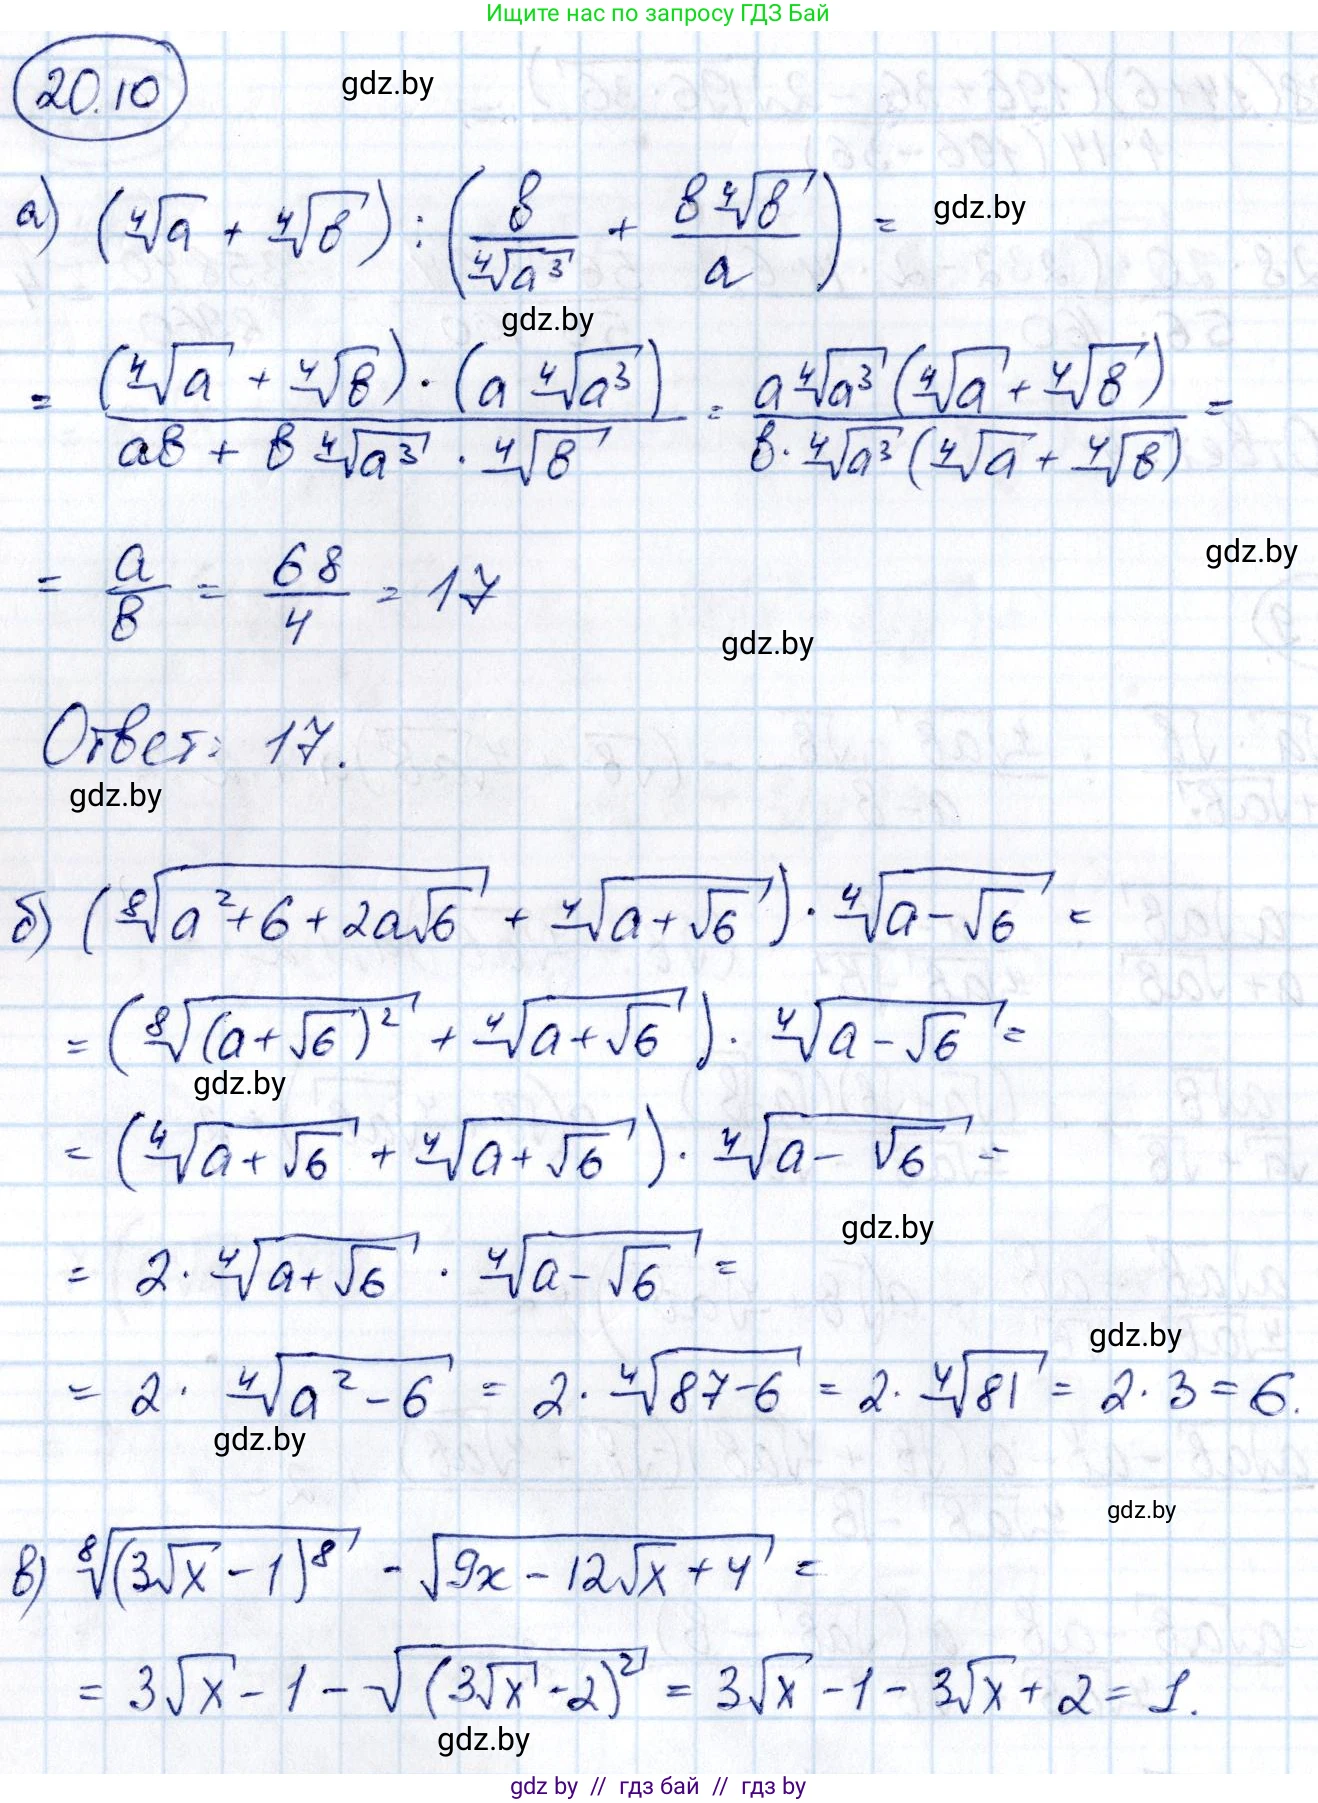 Ищите нас по запросу ГДЗ Бай
20.10
gdz.by
а) (∜a + ∜b) : (b/∜(a³) + b∜b/a) =
gdz.by
gdz.by
= (∜a + ∜b)·(a∜(a³)) / (ab + b∜(a³)·∜b) = a∜(a³)(∜a + ∜b) / (b·∜(a³)(∜a + ∜b)) =
gdz.by
= a/b = 68/4 = 17
gdz.by
Ответ: 17.
gdz.by
б) (⁸√(a² + 6 + 2a√6) + ∜(a + √6)) · ∜(a - √6) =
= (⁸√((a + √6)²) + ∜(a + √6)) · ∜(a - √6) =
gdz.by
= (∜(a + √6) + ∜(a + √6)) · ∜(a - √6) =
gdz.by
= 2 · ∜(a + √6) · ∜(a - √6) =
gdz.by
= 2 · ∜(a² - 6) = 2 · ∜(87 - 6) = 2 · ∜81 = 2 · 3 = 6.
gdz.by
gdz.by
в) ⁸√((3√x - 1)⁸) - √(9x - 12√x + 4) =
= 3√x - 1 - √((3√x - 2)²) = 3√x - 1 - 3√x + 2 = 1.
gdz.by
gdz by // гдз бай // гдз by